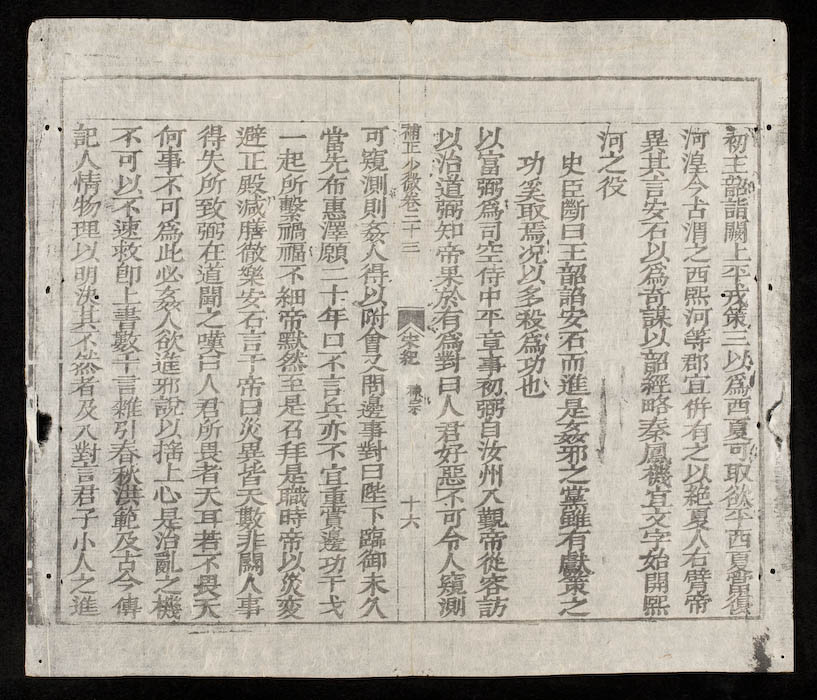 初王韶詣闕上平戎策三以爲西夏可取欲平西夏當復
河湟今古渭之西熙河等郡宜併有之以絶夏人右臂帝
異其言安石以爲奇謀以韶經略秦鳳機宜文字始開熙
河之役
史臣斷曰王韶諂安石而進是姦邪之黨雖有獻策之
功奚取焉况以多殺爲功也
以富弼爲司空侍中平章事初弼自汝州入覲帝從容訪
以治道弼知帝果於有爲對曰人君好惡不可令人窺測
補正少微卷二十三
宋紀
神宗
十六
可窺測則姦人得以附會又問邊事對曰陛下臨御未久
當先布惠澤願二十年口不言兵亦不宜重賞邊功干戈
一起所繫禍福不細帝默然至是召拜是職時帝以災變
避正殿減膳徹樂安石言于帝曰災異皆天數非關人事
得失所致弼在道聞之嘆曰人君所畏者天耳若不畏天
何事不可爲此必姦人欲進邪說以搖上心是治亂之機
不可以不速救卽上書數千言雜引春秋洪範及古今傳
記人情物理以明決其不然者及入對言君子小人之進